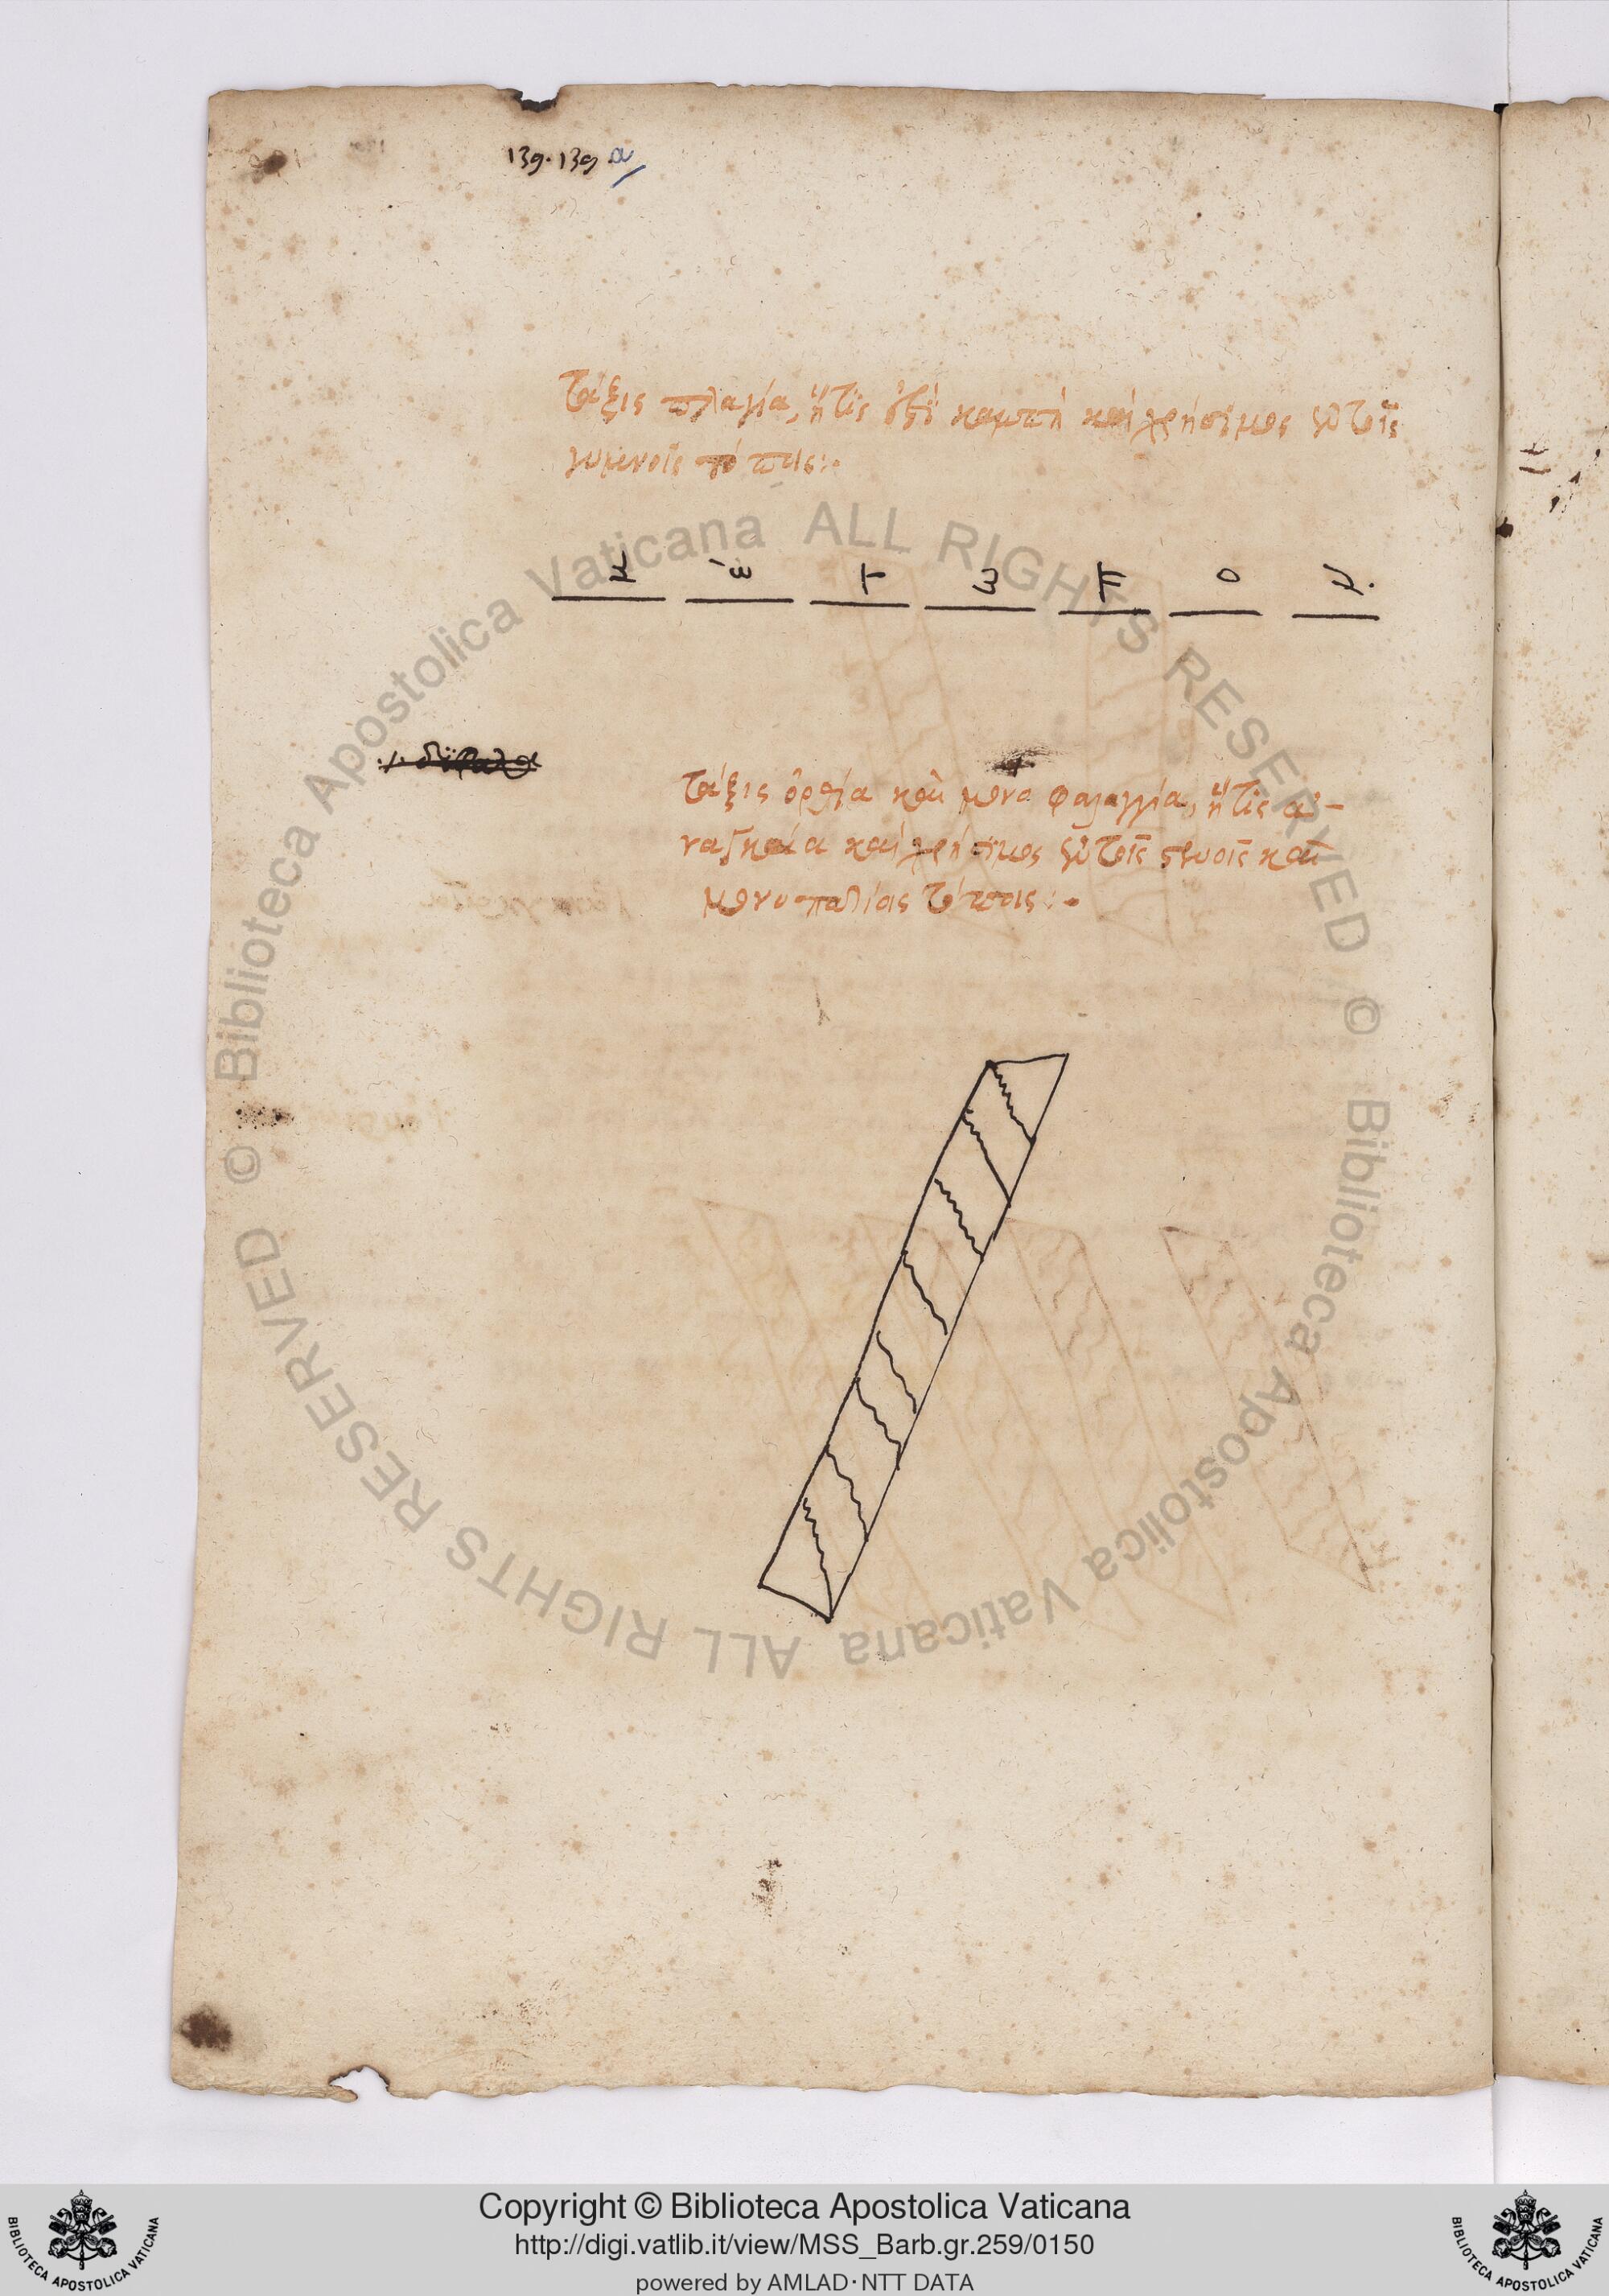 139·139 α
Τάξις πλαγία, ἥτις ἐστὶ καμπὴ καὶ χρήσιμος ἐν τοῖς
γυμνοῖς τόποις:·
τάξις ὀρθία καὶ μονοφαλαγγία, ἥτις ἀ-
ναγκαία καὶ χρήσιμος ἐν τοῖς στενοῖς καὶ
μονοπατίοις τόποις:·
© Biblioteca Apostolica Vaticana ALL RIGHTS RESERVED
© Biblioteca Apostolica Vaticana ALL RIGHTS RESERVED
BIBLIOTECA APOSTOLICA VATICANA
Copyright © Biblioteca Apostolica Vaticana
http://digi.vatlib.it/view/MSS_Barb.gr.259/0150
powered by AMLAD·NTT DATA
BIBLIOTECA APOSTOLICA VATICANA